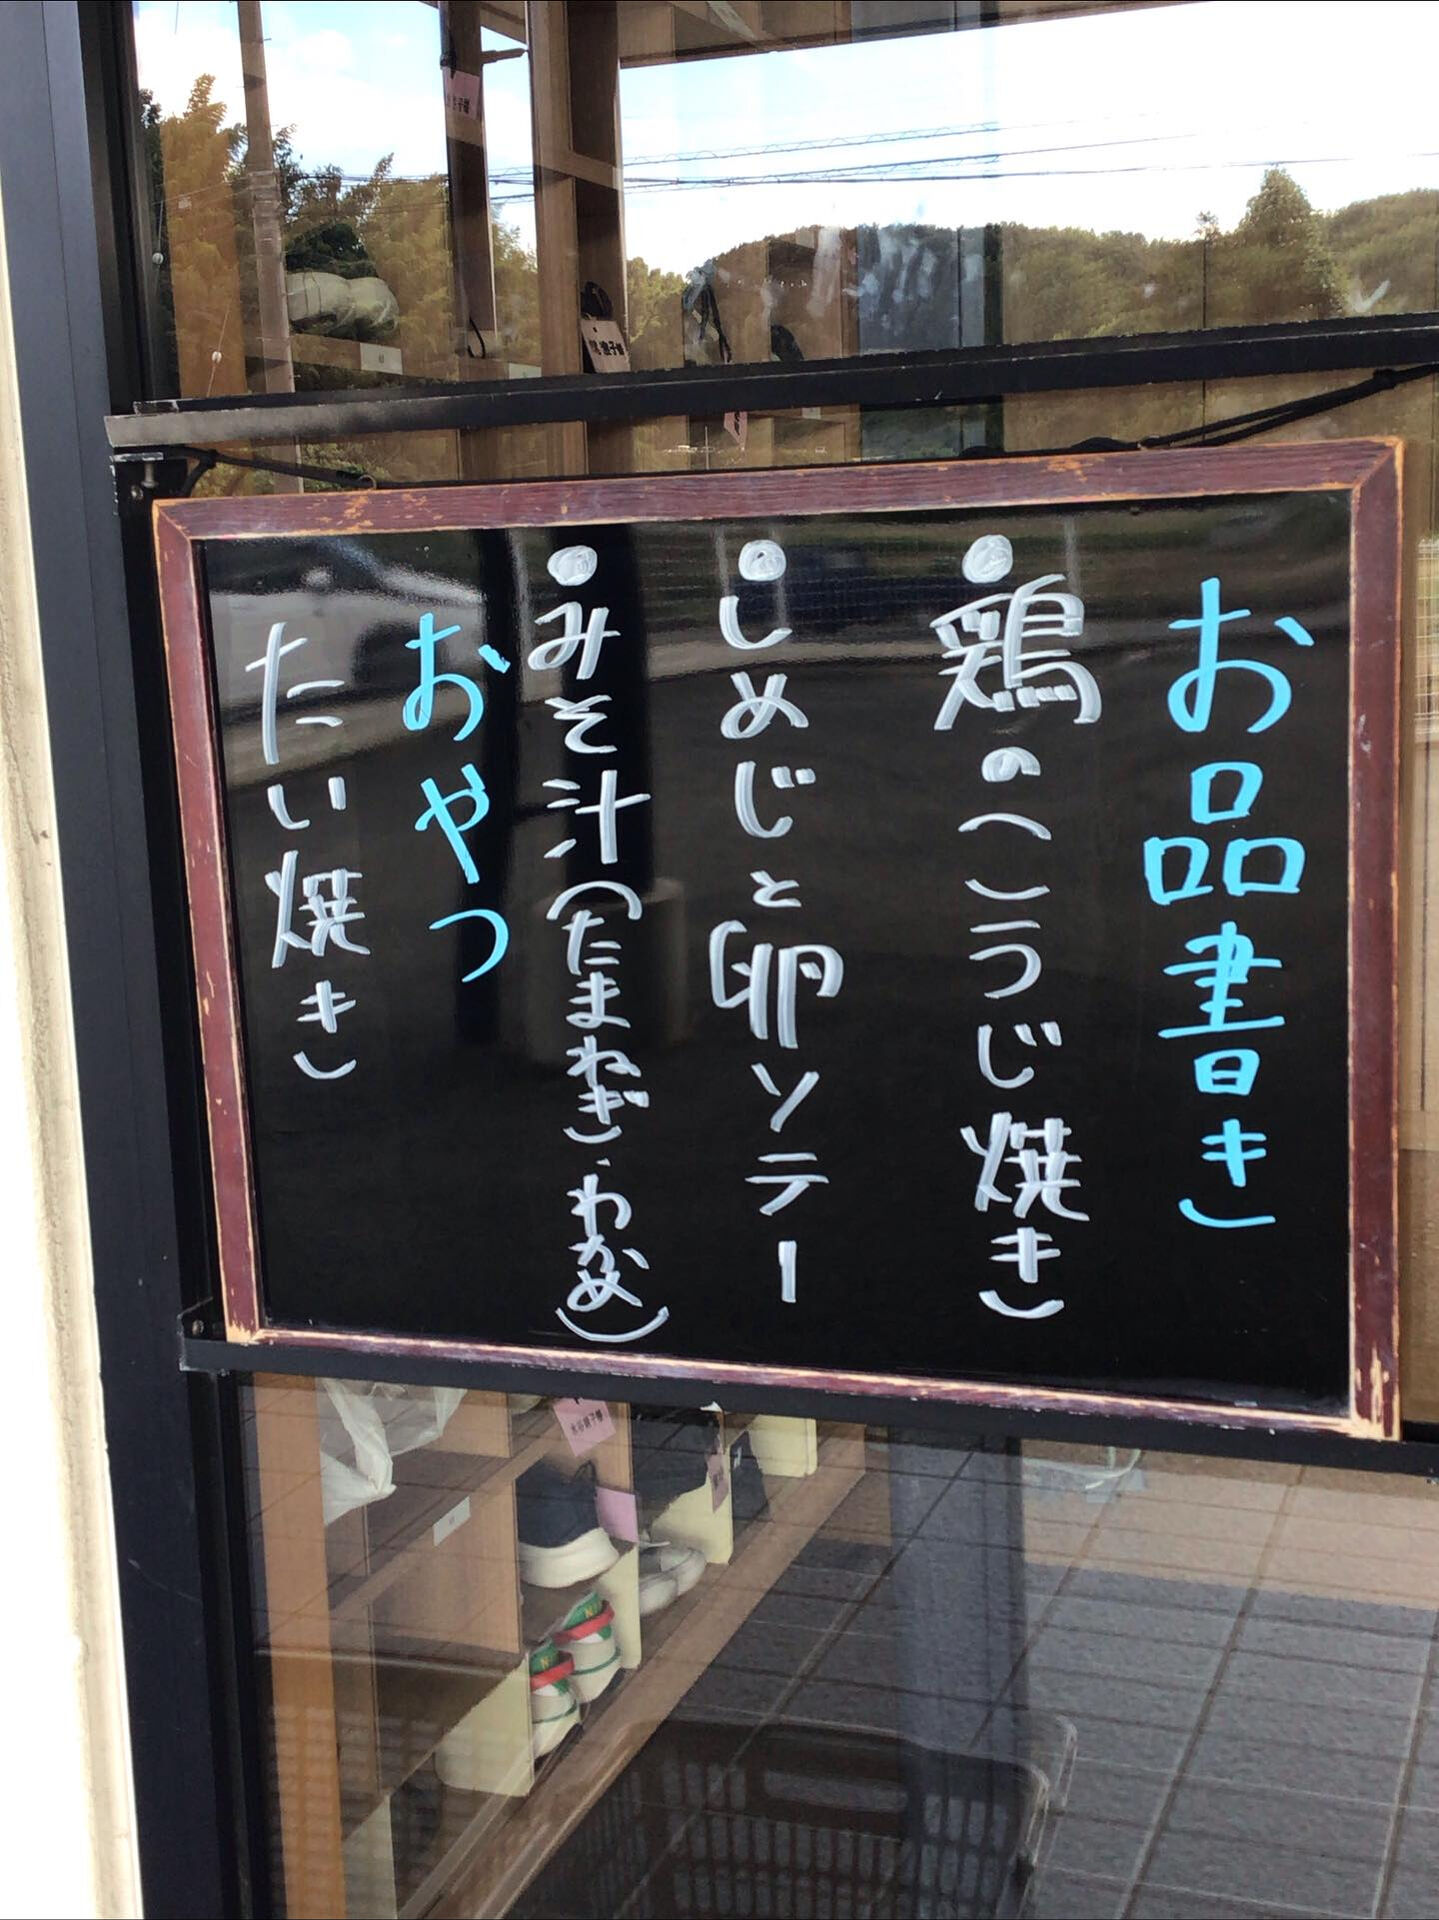 お品書き
●鶏のこうじ焼き
●しめじと卵ソテー
●みそ汁(たまねぎ、わかめ)
おやつ
たい焼き